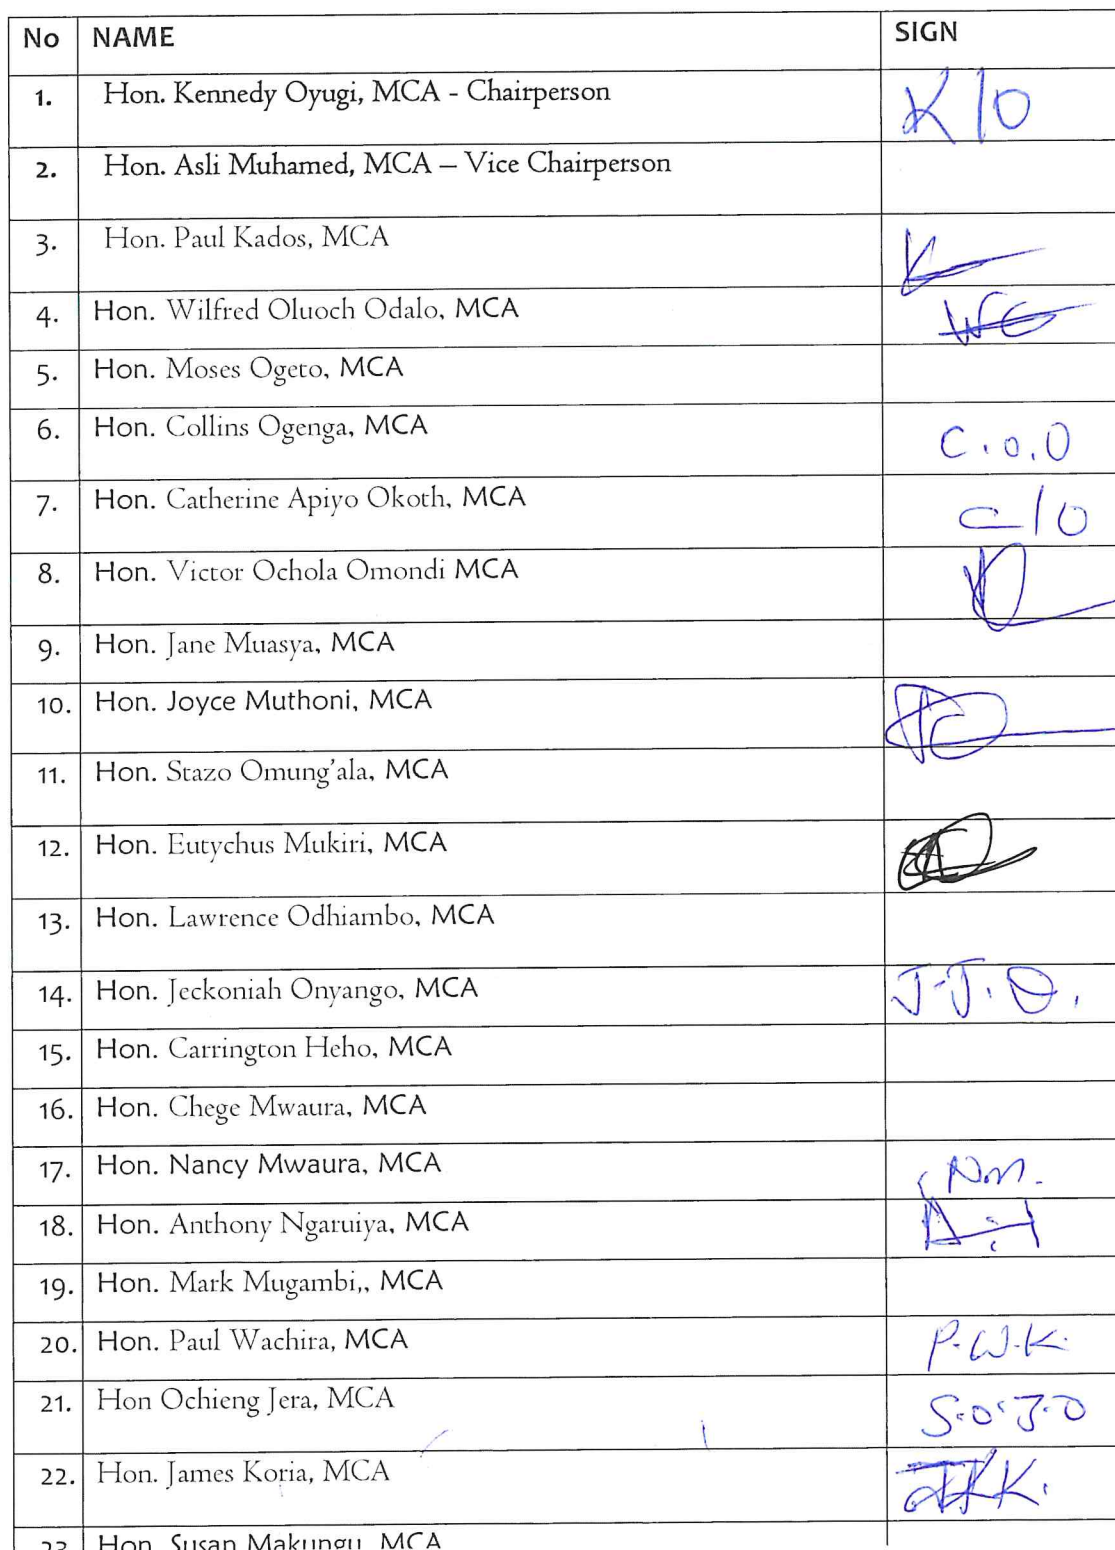 No NAME SIGN
1. Hon. Kennedy Oyugi, MCA - Chairperson K/O
2. Hon. Asli Muhamed, MCA – Vice Chairperson
3. Hon. Paul Kados, MCA
4. Hon. Wilfred Oluoch Odalo, MCA
5. Hon. Moses Ogeto, MCA
6. Hon. Collins Ogenga, MCA C.O.O
7. Hon. Catherine Apiyo Okoth, MCA C/O
8. Hon. Victor Ochola Omondi MCA
9. Hon. Jane Muasya, MCA
10. Hon. Joyce Muthoni, MCA
11. Hon. Stazo Omung'ala, MCA
12. Hon. Eutychus Mukiri, MCA
13. Hon. Lawrence Odhiambo, MCA
14. Hon. Jeckoniah Onyango, MCA J.J.O.
15. Hon. Carrington Heho, MCA
16. Hon. Chege Mwaura, MCA
17. Hon. Nancy Mwaura, MCA Nm.
18. Hon. Anthony Ngaruiya, MCA
19. Hon. Mark Mugambi,, MCA
20. Hon. Paul Wachira, MCA P.W.K.
21. Hon Ochieng Jera, MCA S.O.J.O
22. Hon. James Koria, MCA JKK.
23 Hon. Susan Makungu, MCA